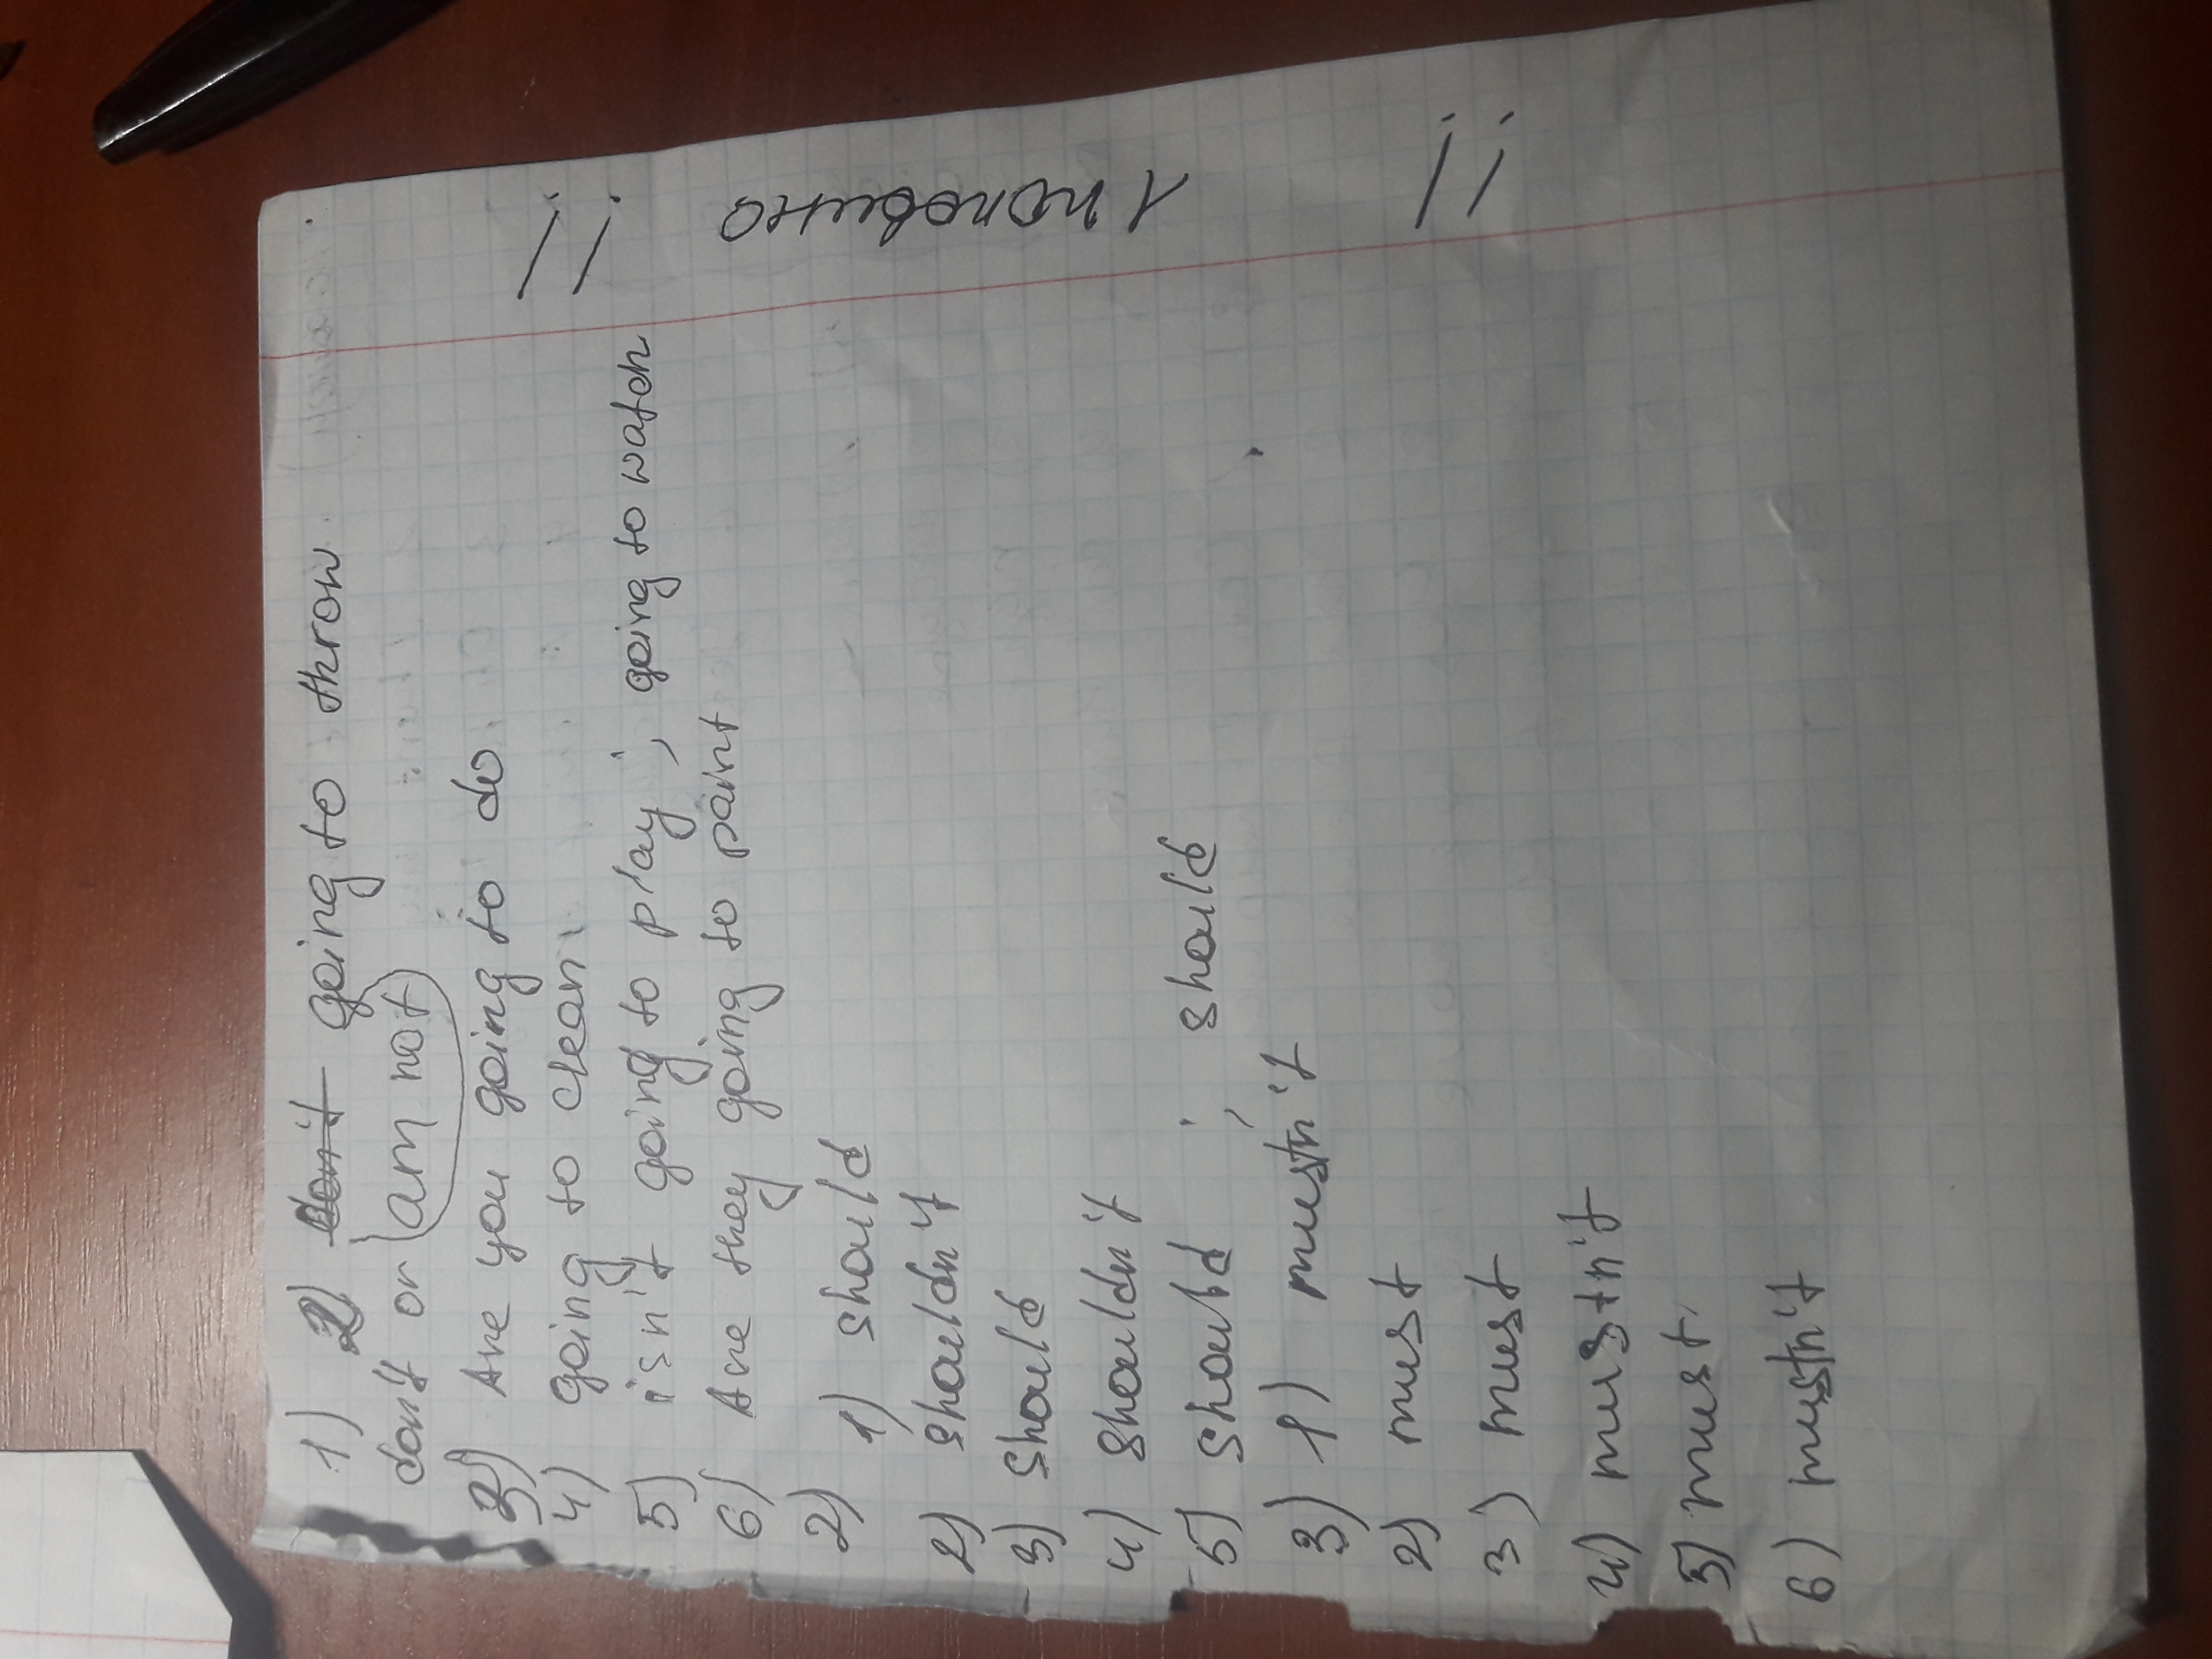 1) 2) don't going to throw
don't or (am not)
3) Are you going to do
4) going to clean
5) isn't going to play, going to watch
6) Are they going to paint
2) 1) should
2) shouldn't
3) should
4) shouldn't
5) should, should
3) 1) mustn't
2) must
3) must
4) mustn't
5) must
6) mustn't
!! 1 половина !!